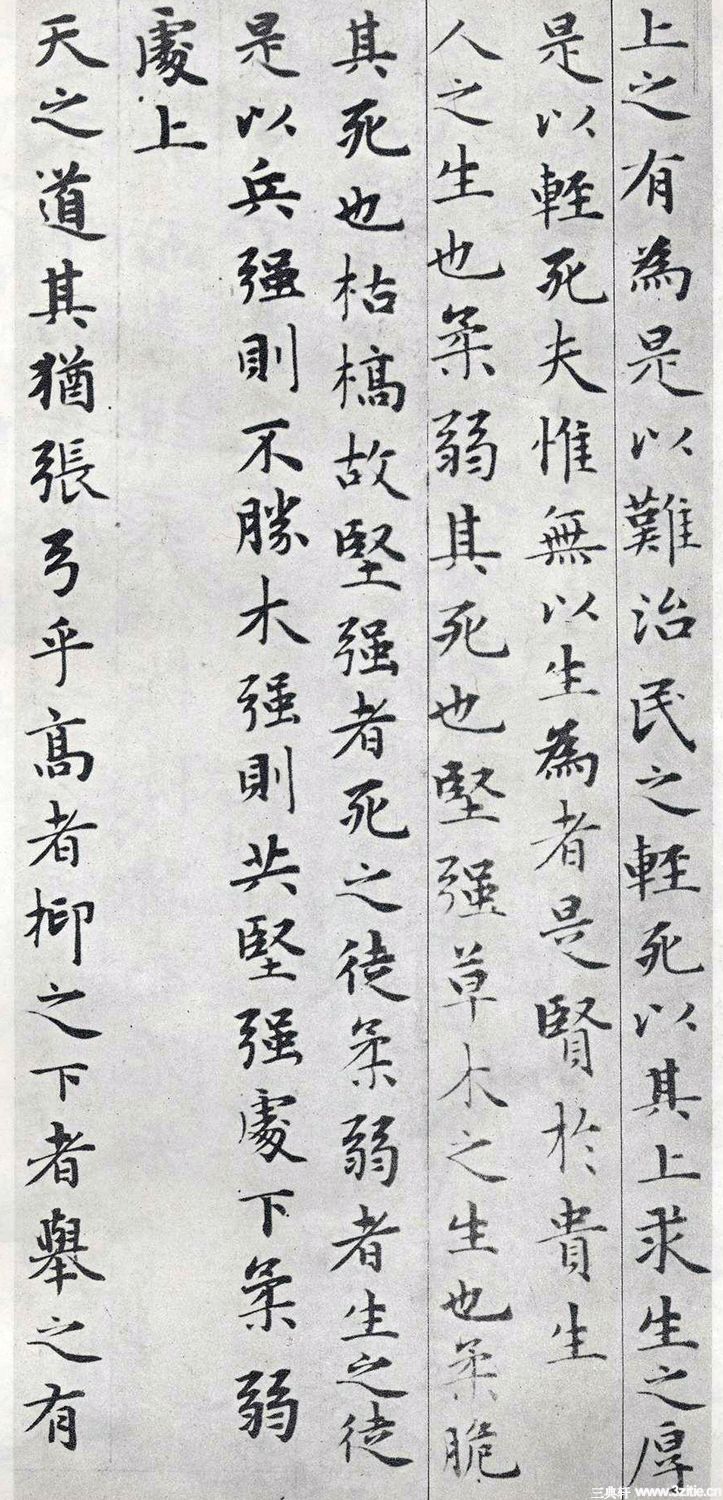 上之有為是以難治民之輕死以其上求生之厚
是以輕死夫惟無以生為者是賢於貴生
人之生也柔弱其死也堅强草木之生也柔脆
其死也枯槁故堅强者死之徒柔弱者生之徒
是以兵强則不勝木强則共堅强處下柔弱
處上
天之道其猶張弓乎高者抑之下者舉之有
三典轩 www.3zitie.cn